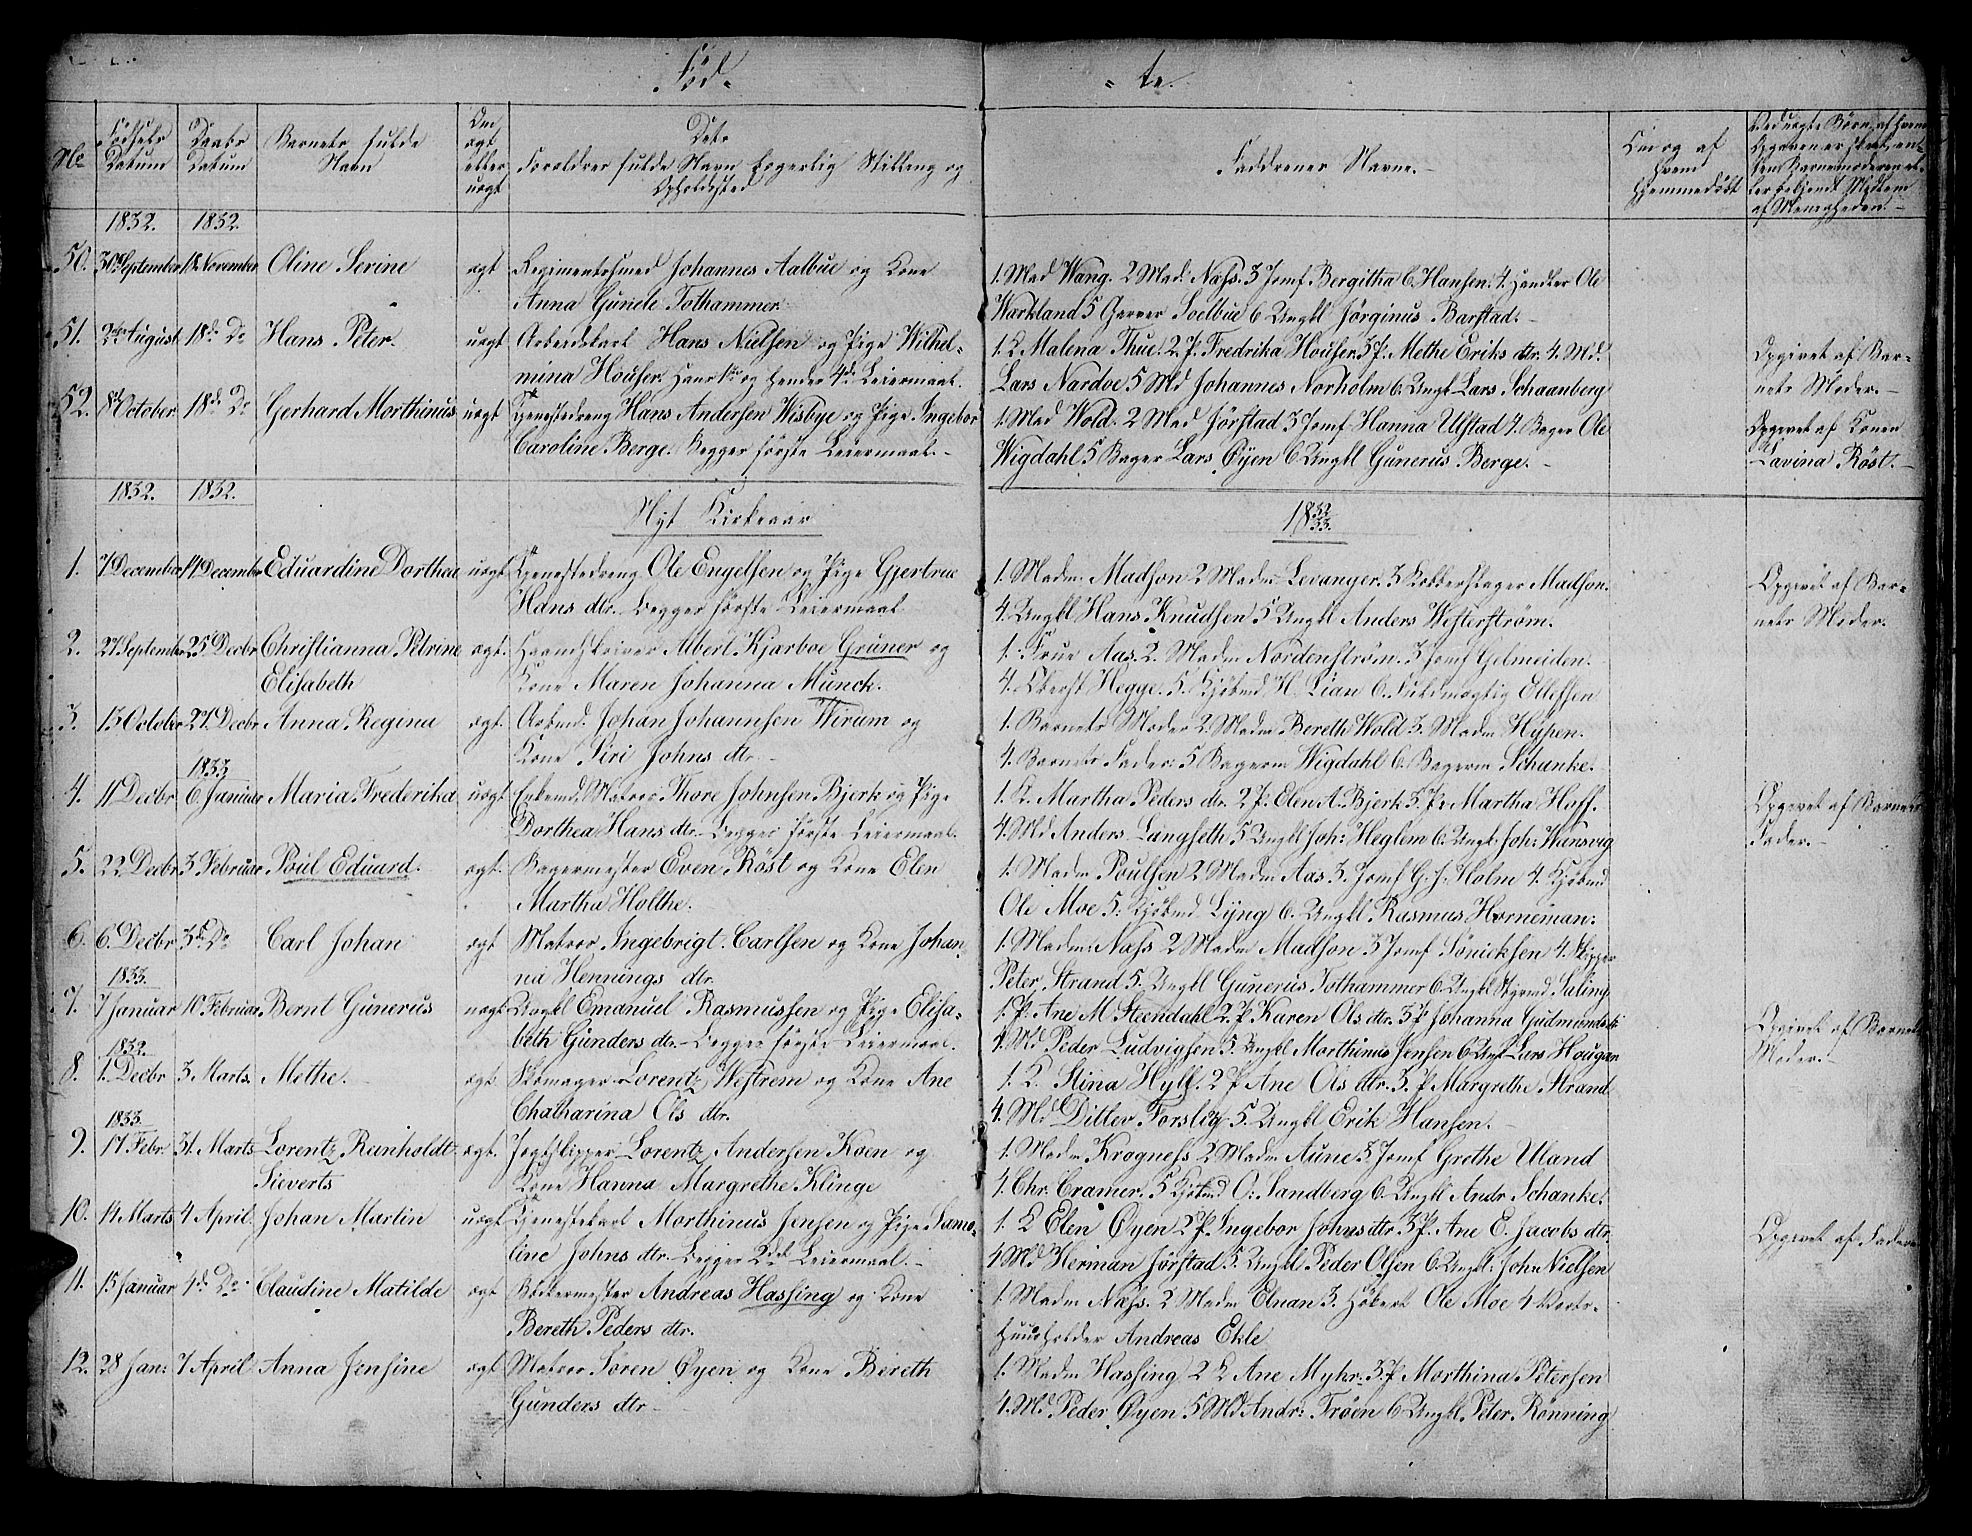 Fød-
te.
No
Fødsels Datum
Daabs Datum
Barnets fulde Navn
Om ægt eller uægt
Dets Foreldres fulde Navn Eggerlig Stilling og Opholdssted
Faddrenes Navne.
Om og af hvem hjemmedøbt
1832. 1832.
50. 30 September 18 November Oline Serine ægt Regimentssmed Johannes Aalbue og Kone
Anna Gunele Tothammer.
1. Mad Wang. 2 Mad. Næss. 3 Jomf Bergitha C. Hansen. 4. Handler Ole
Warkland 5 Garver Soelbue 6 Ungkl Jørginus Barstad.
51. 2den August 18de Do Hans Peter. uægt Arbeidskarl Hans Nielsen og Pige Wilhel-
mina Houser. Hans 1ste og hendes 4de Leiermaal.
1. K Malena Thue. 2. P. Fredrika Houser. 3 P. Methe Eriks dtr. 4. Md.
Lars Nardoe 5 Md Johannes Norholm 6 Ungkl Lars Schaanberg
Opgivet af Bar-
nets Moder.
52. 8de October 18de Do Gerhard Morthinus uægt Tjenestedreng Hans Andersen Wisbye og Pige Ingebor
Caroline Berge. Begges første Leiermaal.
1. Mad Wold. 2 Mad Jørstad 3 Jomf Hanna Ulstad 4. Bager Ole
Wigdahl 5 Bager Lars Øyen 6 Ungkl Gunerus Berge.
Opgivet af Konen
Lavina Røst.
1832. 1832.
Nyt Kirkeaar
1832/33.
1. 7 December 14 December Eduardine Dorthea uægt Tjenestedreng Ole Engelsen og Pige Gjertrue
Hans dtr. Begges første Leiermaal
1. Madm: Madson 2 Madm: Levanger. 3 Kobberslager Madson.
4. Ungkl Hans Knudsen 5 Ungkl Anders Westerstrøm.
Opgivet af Bar-
nets Moder.
2. 27 September 25 Decbr Christianna Petrine ægt. Albert Kjarboe Gruner og
Elisabeth Kone Maren Johanna Munck.
1. Frue Aas. 2. Madm Nordenstrøm. 3 Jomf Gelmeiden.
4. Oberst Hegge. 5. Kjøbmd H. Lian 6. Fuldmægtig Ellefsen
3. 13 October 27 Decbr Anna Regina ægt. Arbmd. Johan Johannsen Wirum og
Kone Siri Johns dtr.
1. Barnets Moder 2. Madm Bereth Wold 3. Madm Hysen.
4. Barnets Fader. 5 Bagerm Wigdahl 6. Bagerm Schanke.
1833
4. 11 Decbr 6 Januar Maria Frederika uægt Enkemd. Matros Thore Johnsen Bjerk og Pige
Dorthea Hans dtr. Begges første Leiermaal.
1. K. Martha Peders dtr. 2 P. Elen A. Bjerk 3 P. Martha Hoff.
4. Md Anders Langseth 5 Ungkl Joh: Heglem 6. Ungk. Joh: Hansvig
Opgivet af Barnets
Fader.
5. 22 Decbr 3 Februar Poul Eduard. ægt. Bagermester Even Røst og Kone Elen
Martha Holthe.
1. Madm Poulsen 2 Madm Aas 3. Jomf G. J. Holm 4. Kjøbmd
Ole Moe 5. Kjøbmd Lyng 6. Ungkl Rasmus Horneman.
6. 6. Decbr 3d Do Carl Johan ægt Matros Ingebrigt Carlsen og Kone Johan-
na Hennings dtr.
1. Madm. Næss 2 Madm Madson 3 Jomf Sønicksen 4. Skipper
Peter Strand 5. Ungkl Gunerus Tothammer 6. Ungkl Styrmd Saling
1833.
7. 7 Januar 10 Februar Bernt Gunerus uægt Ungkl Emanuel Rasmussen og Pige Elisa-
beth Gunders dtr. Begges første Leiermaal.
1. P. Ane M Steendahl 2. P. Karen Ols dtr. 3 P. Johanna Gudmunds dtr
4. Md Peder Ludvigsen 5. Ungkl Morthinus Jensen 6 Ungk Lars Hougan
Opgivet af Barnets
Moder.
1832.
8. 1. Decbr 3. Marts. Methe. ægt Skomager Lorentz Westrem og Kone Ane
Chatharina Ols dtr.
1. K. Stina Hyll. 2 P. Ane Ols dtr. 3. P. Margrethe Strand
4. Md Ditlev Forslig 5. Ungkl Erik Hansen.
1833.
9. 17 Febr. 31. Marts Lorentz Reinholdt ægt. Jagtskipper Lorentz Andersen Koen og
Sieverts Kone Hanna Margrethe Klinge
1. Madm Krogness 2 Madm Aune 3. Jomf Grethe Uland
4. Chr. Cramer. 5 Kjøbmd O: Sandberg 6. Ungkl Andr Schanke.
10. 14 Marts 4 April. Johan Martin uægt Tjenestekarl Morthinus Jensen og Pige Samo-
line Johns dtr. Begges 2det Leiermaal.
1. K Elen Øyen 2 P. Ingebor Johns dtr. 3 P. Ane E. Jacobs dtr.
4 Md Herman Jørstad 5. Ungkl Peder Olsen 6 Ungk. John Nielsen
Opgivet af Faderen
11. 15 Januar 4de Do Claudine Matilde ægt Bødkermester Andreas Hassing og Kone
Bereth Peders dtr.
1. Madm Næss. 2 Madm Elnan 3. Høker Ole Moe 4 Verts-
huusholder Andreas Ekle
12. 28 Jan: 7 April Anna Jensine ægt Matros Søren Øyen og Kone Bereth
Gunders dtr
1. Madm Hassing 2 K Ane Myhr. 3 P. Morthina Petersen
4. Md Peder Øyen 5 Md Andr: Trøen 6 Ungkl. Peter Rønning